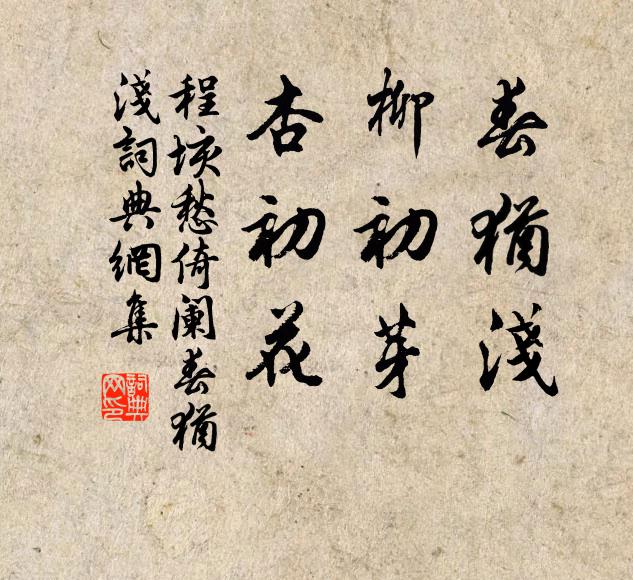 春猶淺
柳初芽
杏初花
程垓愁倚闌春猶
淺詞典網集
詞典網印